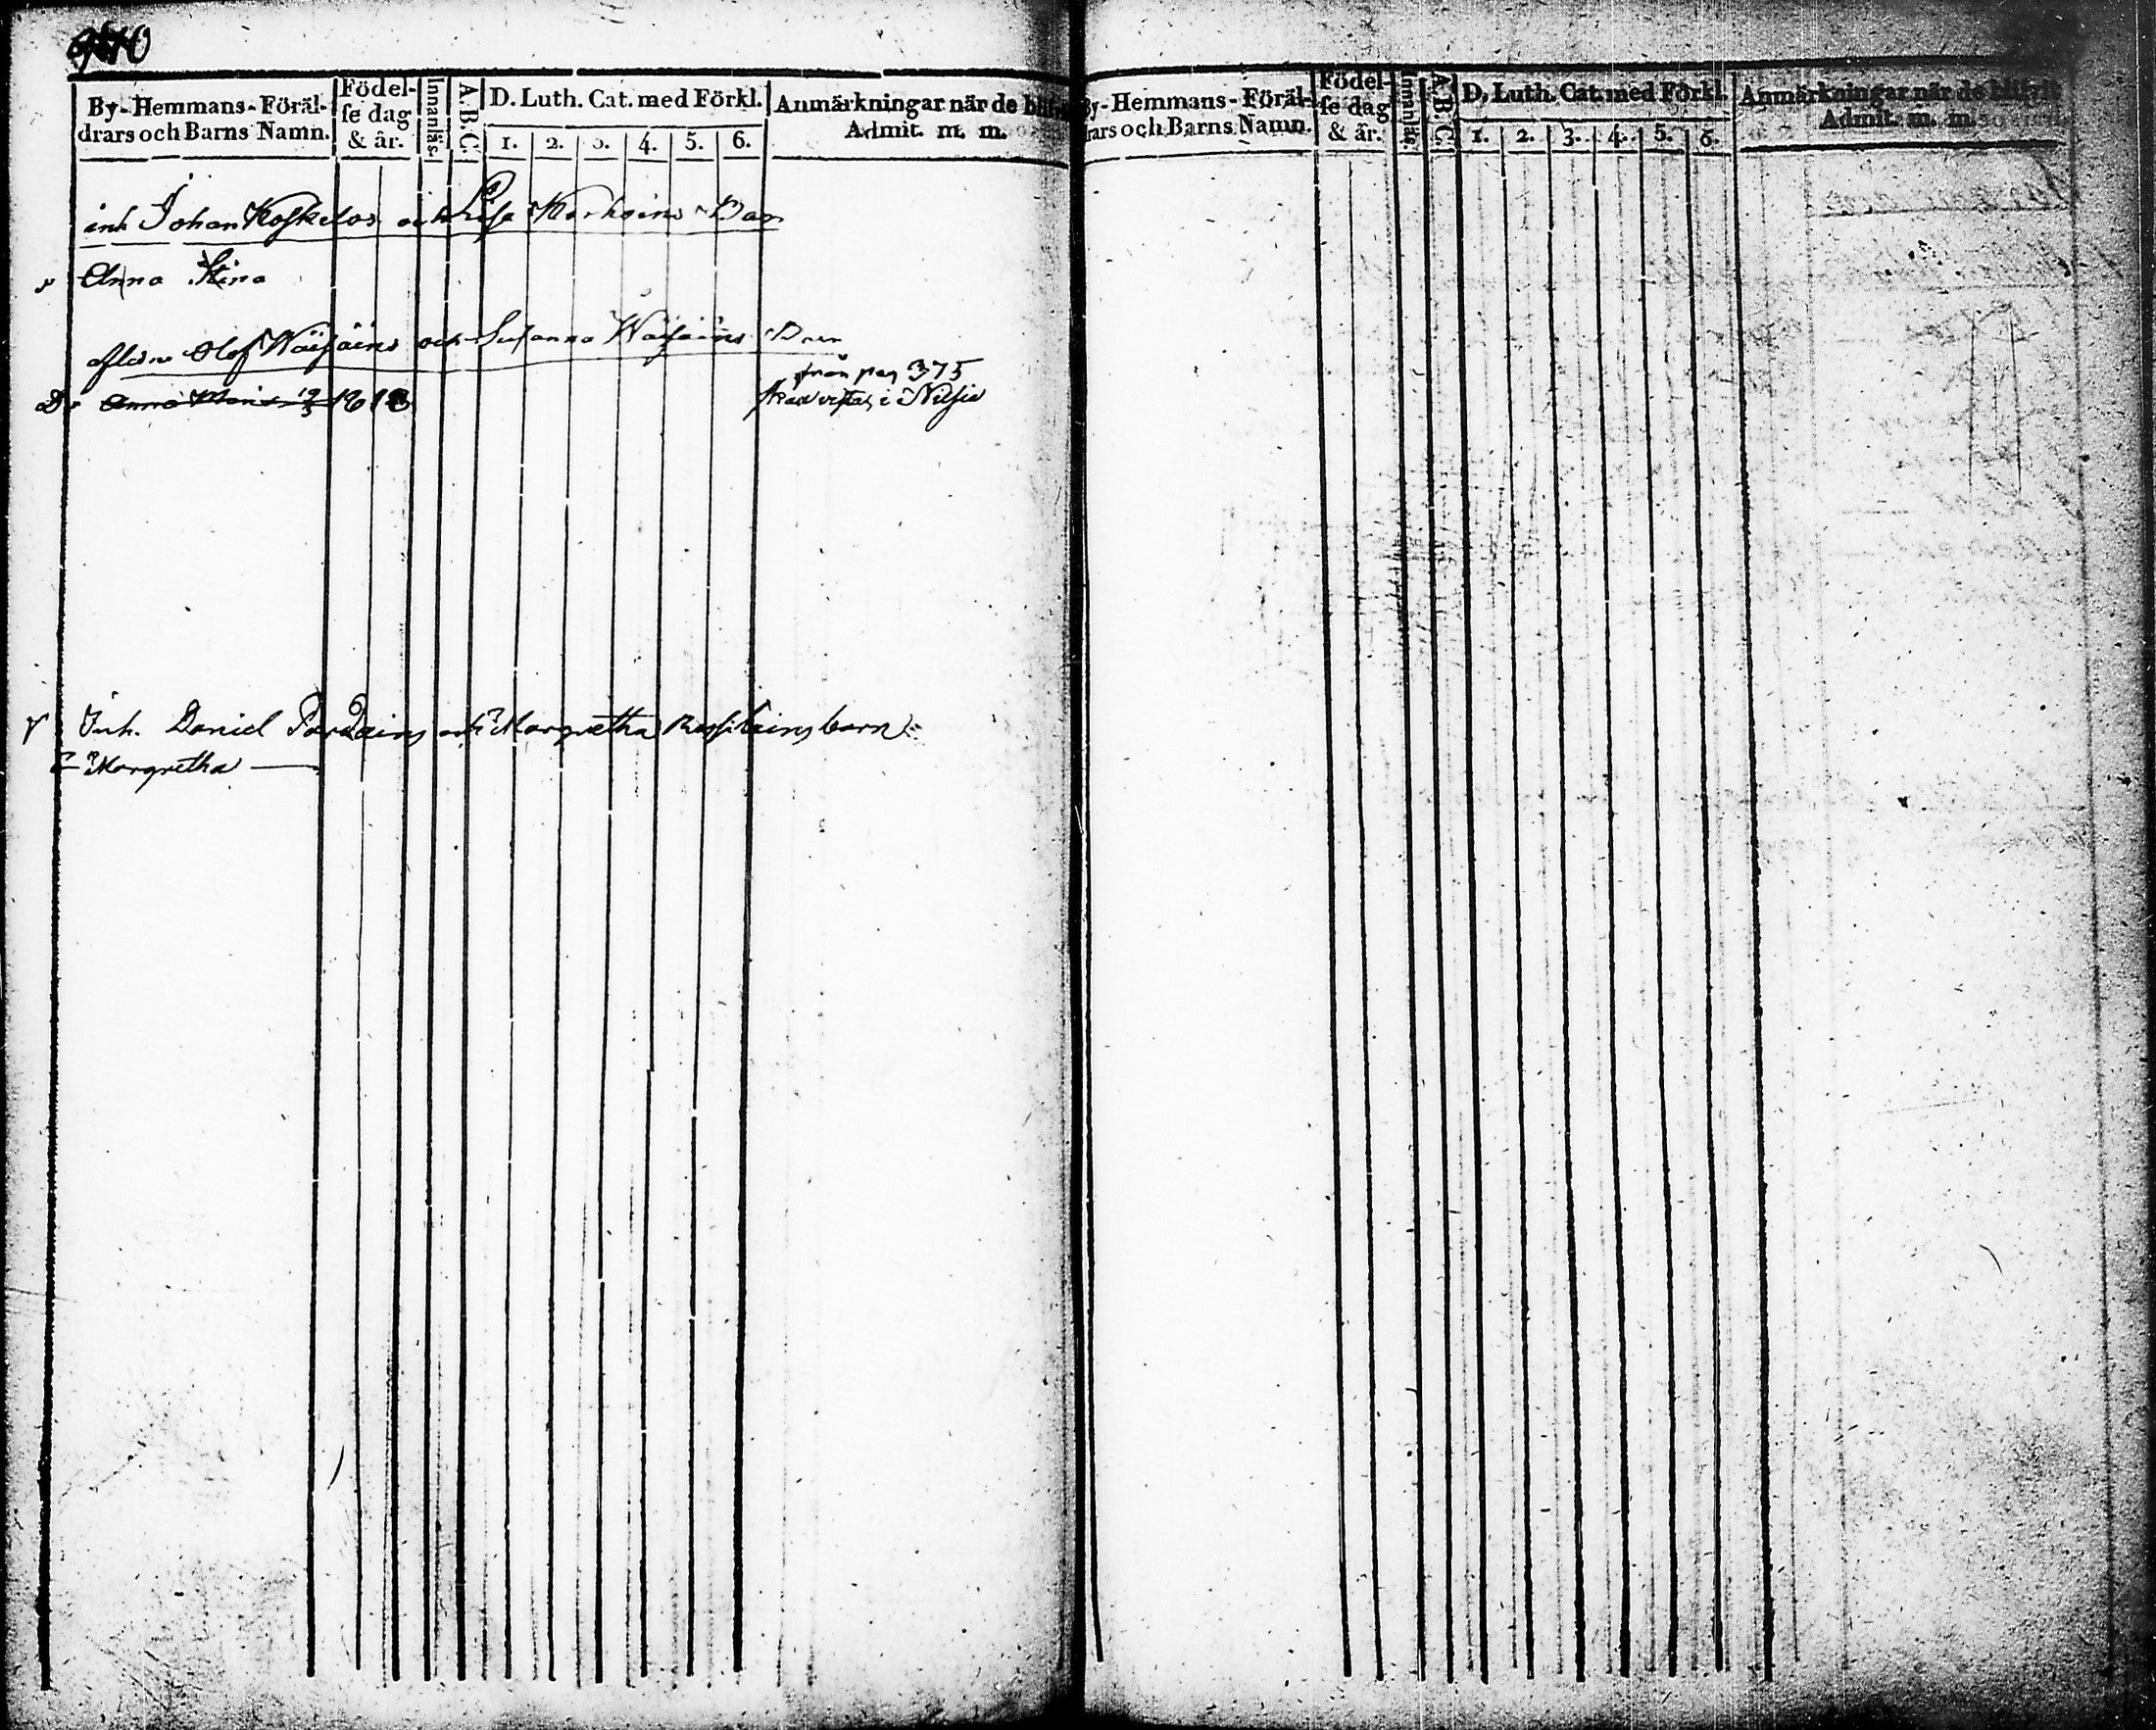 By- Hemmans- Föräl-
drars och Barns Namn.
Födel-
se dag
& år.
Innanläs.
A.B.C.
D. Luth. Cat. med Förkl.
1. 2. 3. 4. 5. 6.
Anmärkningar när de blif
Admit. m. m.
inh Johan Koskelos och Lisa Korhoins Barn
Anna Stina
aflidne Olof Wäisäins och Susanna Wäisäins Barn
från pag 375
D Anna Maria 1818
vistas i Nilsiä
Inh. Daniel och Margretha barn
Margretha
By- Hemmans- Föräl-
drars och Barns Namn.
Födel-
se dag
& år.
Innanläs.
A.B.C.
D. Luth. Cat. med Förkl.
1. 2. 3. 4. 5. 6.
Anmärkningar när de blifvit
Admit. m. m.